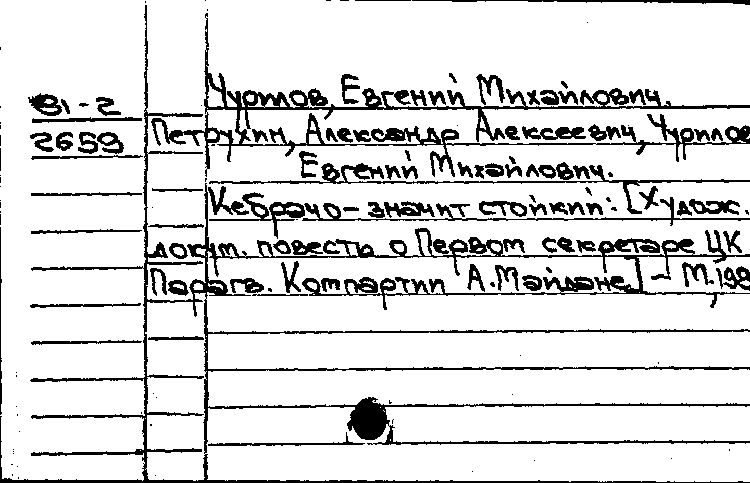 81-2
2659
Чурилов, Евгений Михайлович.
Петрухин, Александр Алексеевич, Чурилов
Евгений Михайлович.
Кебрачо - значит стойкий: [Худож.
докум. повесть о Первом секретаре ЦК
Парагв. Компартии А. Майдане] - М., 198